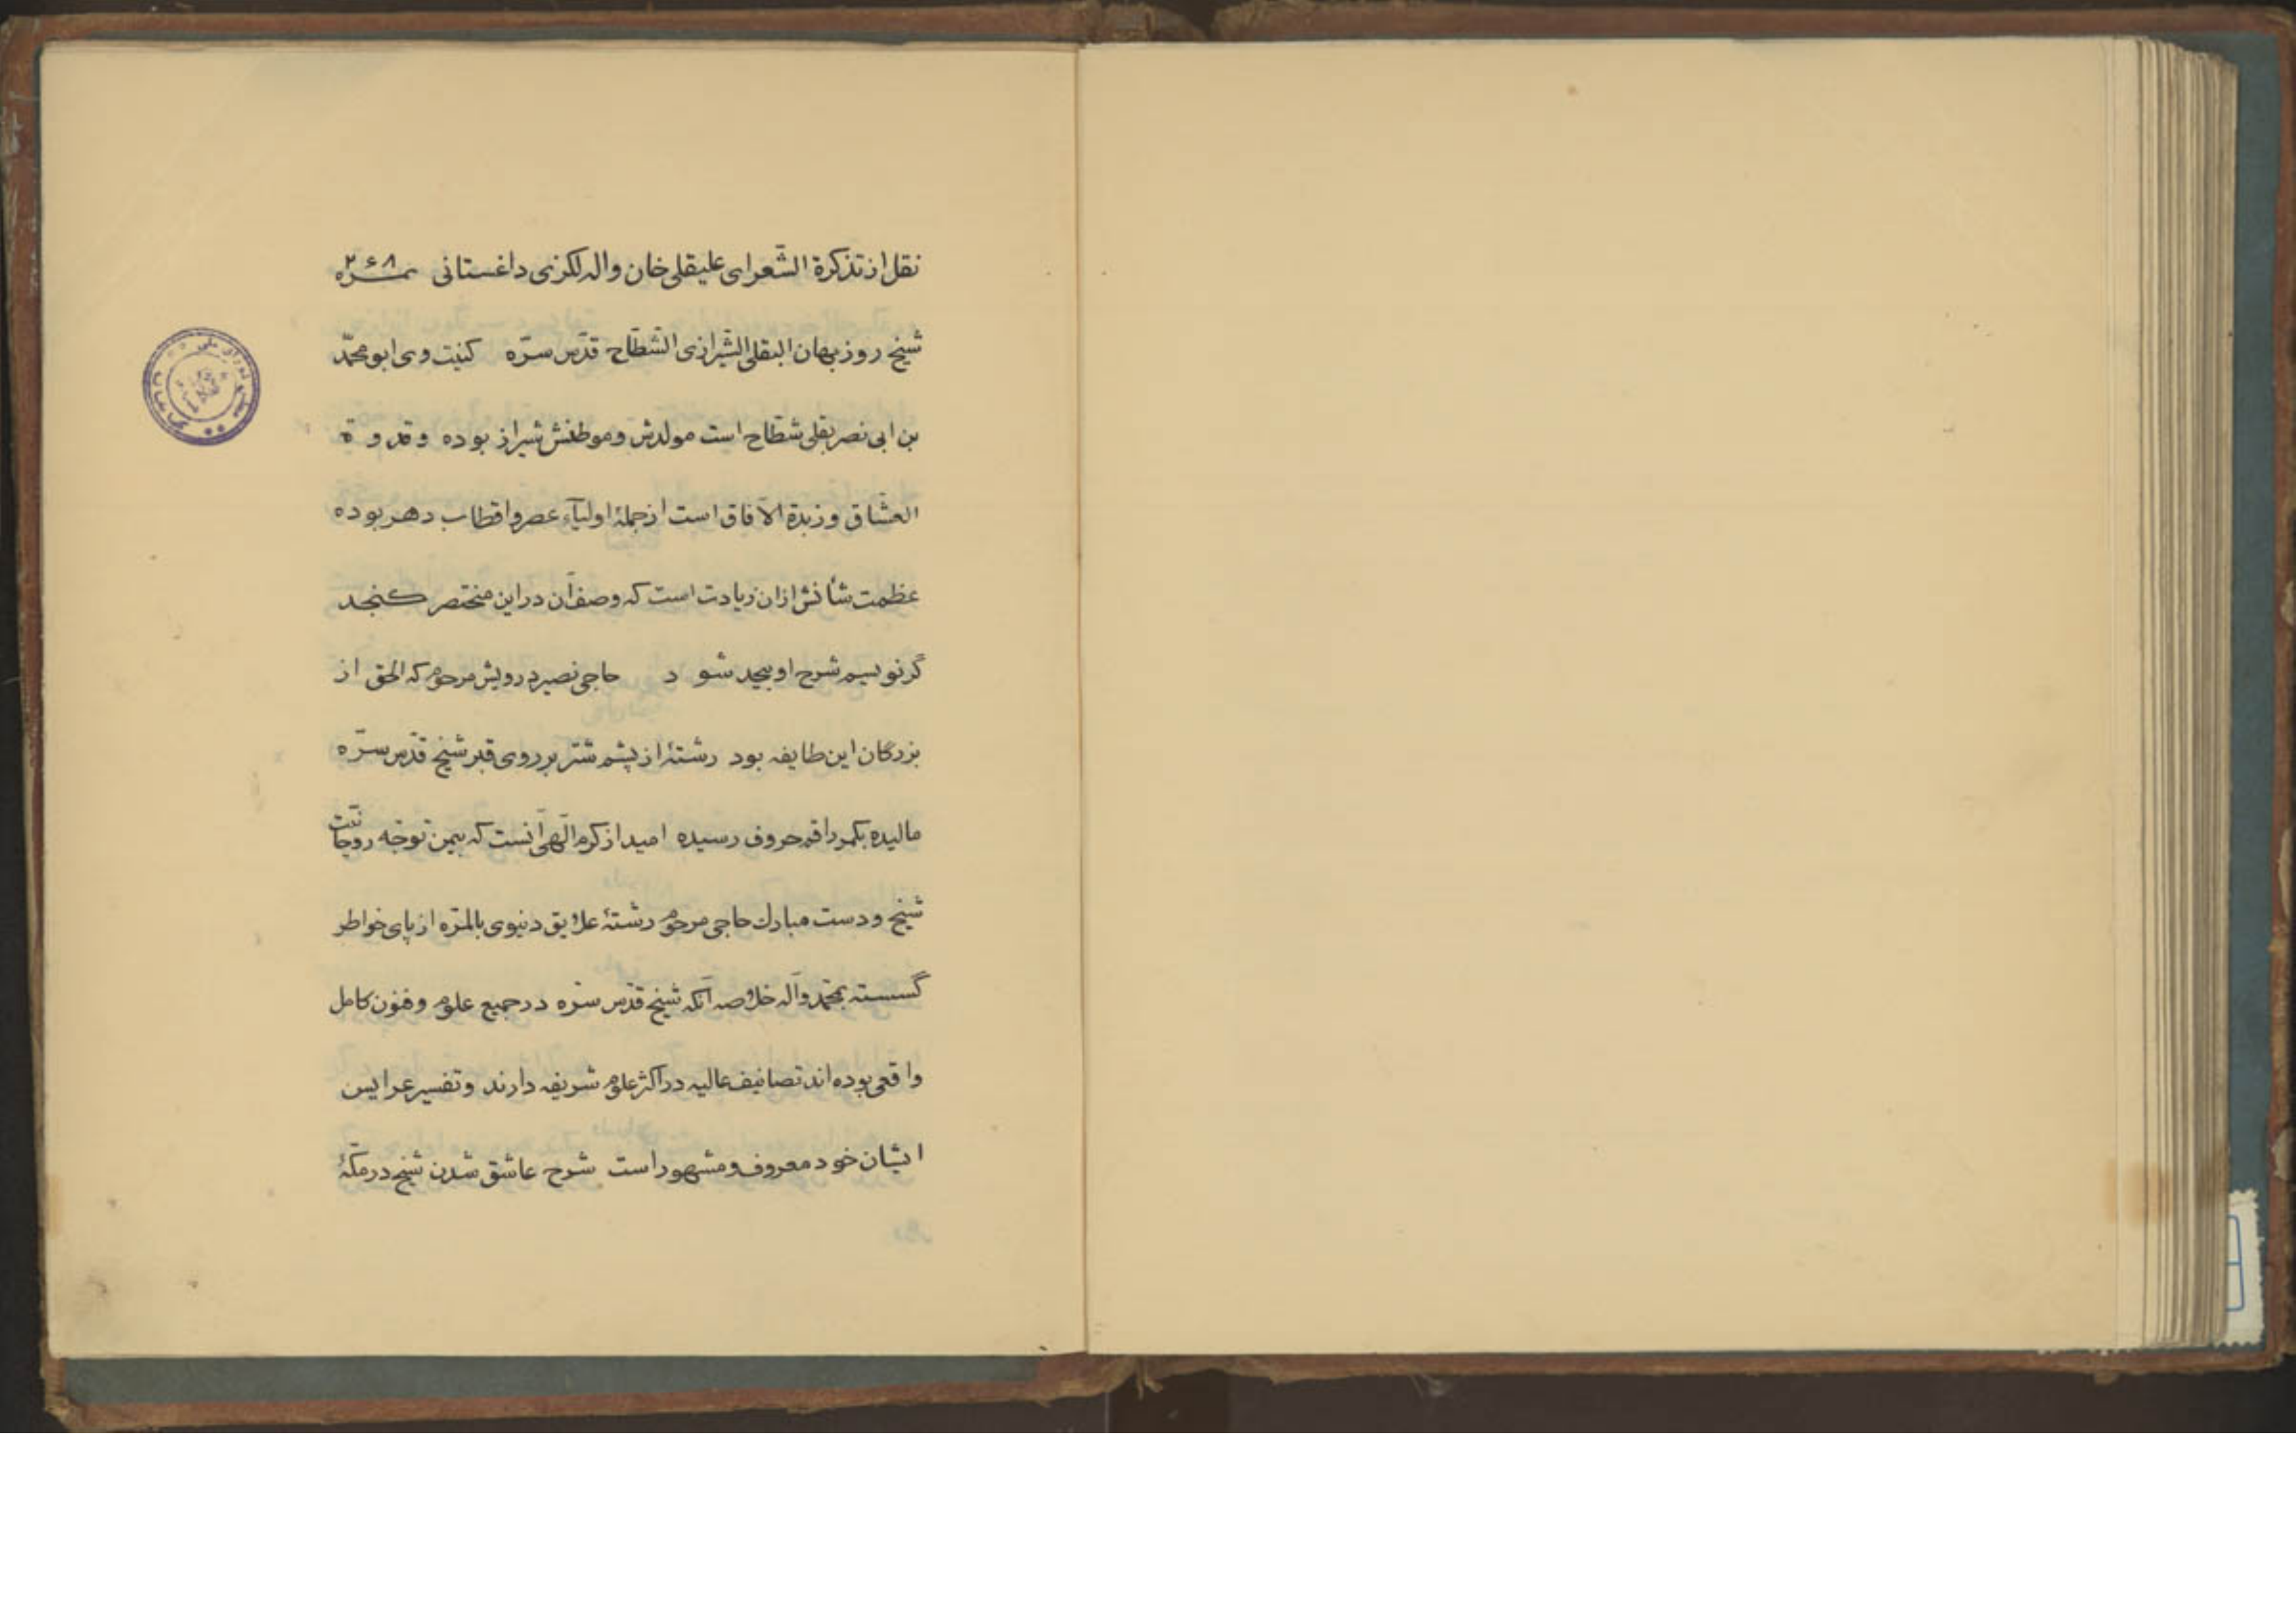 نقل از تذکرة الشّعرای علیقلی خان واله لکزی داغستانی نمره ۲۶۸
شیخ روزبهان البقلی الشیرازی الشطّاح قدّس سرّه کنیت وی ابو محمّد
بن ابی نصر بقلی شطّاح است مولدش و موطنش شیراز بوده و قدوة
العشّاق و زبدة الآفاق است از جملهٔ اولیآء عصر و اقطاب دهر بوده
عظمت شأنش ازان زیادت است که وصف آن در این مختصر کنجد
گر نویسم شرح او بیحد شود حاجی نصیر درویش مرحوم که الحق از
بزرگان این طایفه بود رشتهٔ از پشم شتر بر روی قبر شیخ قدّس سرّه
مالیده بکمر راقم حروف رسیده امید از کرم الٓهی آنست که بیمن توجّه روحانیّت
شیخ و دست مبارك حاجی مرحوم رشتهٔ علایق دنیوی بالمرّه از پای خواطر
گسسته بمحمّد وآله خلاصه آنکه شیخ قدّس سرّه در جمیع علوم و فنون کامل
واقعی بوده اند تصانیف عالیه در اکثر علوم شریفه دارند و تفسیر عرایس
ایشان خود معروف و مشهور است شرح عاشق شدن شیخ در مکّهٔ